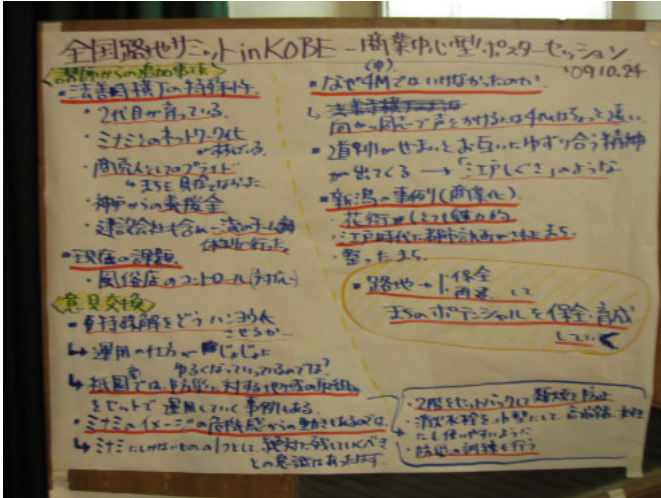 全国路地サミット in KOBE － 商業中心型ポスターセッション
'09 10.24
講師からの追加事項
・法善寺横丁の特殊性
・2代目が育っている
・ミナミとのネットワーク化
があがる
・商売人としてのプライド
・神戸からの義援金
・建設会社も含め一流のチーム
体制で行った。
・現在の課題
・風俗店のコントロール(対応)
意見交換
・特殊解をどう
させるか
↳ 運用の仕方が じょじょに
ゆるくなっていっているのでは?
↳ 祇園では、防災に対する地域の
をセットで運用していく事例もある。
・ミナミのイメージの危機感からの動きもあるのでは
↳ ミナミにしかないものの1つとして、絶対に残していくべき
との意識にあったはず.
(中)
・なぜ4Mではいけなかったのか
↳ 法善寺横丁
向かつ同志で声をかけるには4mはちょっと遠い.
・道幅がせまいとお互いゆずり合う精神
が出てくる → 「江戸しぐさ」のような
・新潟の事例(商業化)
・花街がとても魅力的
・江戸時代に都市計画がされたまち.
・整ったまち.
・路地→ ・保全
・再建 して
まちのポテンシャルを保全・育成
していく
・2階をセットバックして類焼を防止
・消火栓を小型にして、高齢者・女性
にも使いやすいように
・防災の訓練を行う